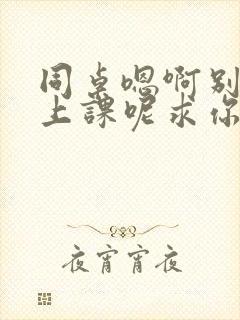 同桌嗯啊别
上課呢求你
夜宵宵夜